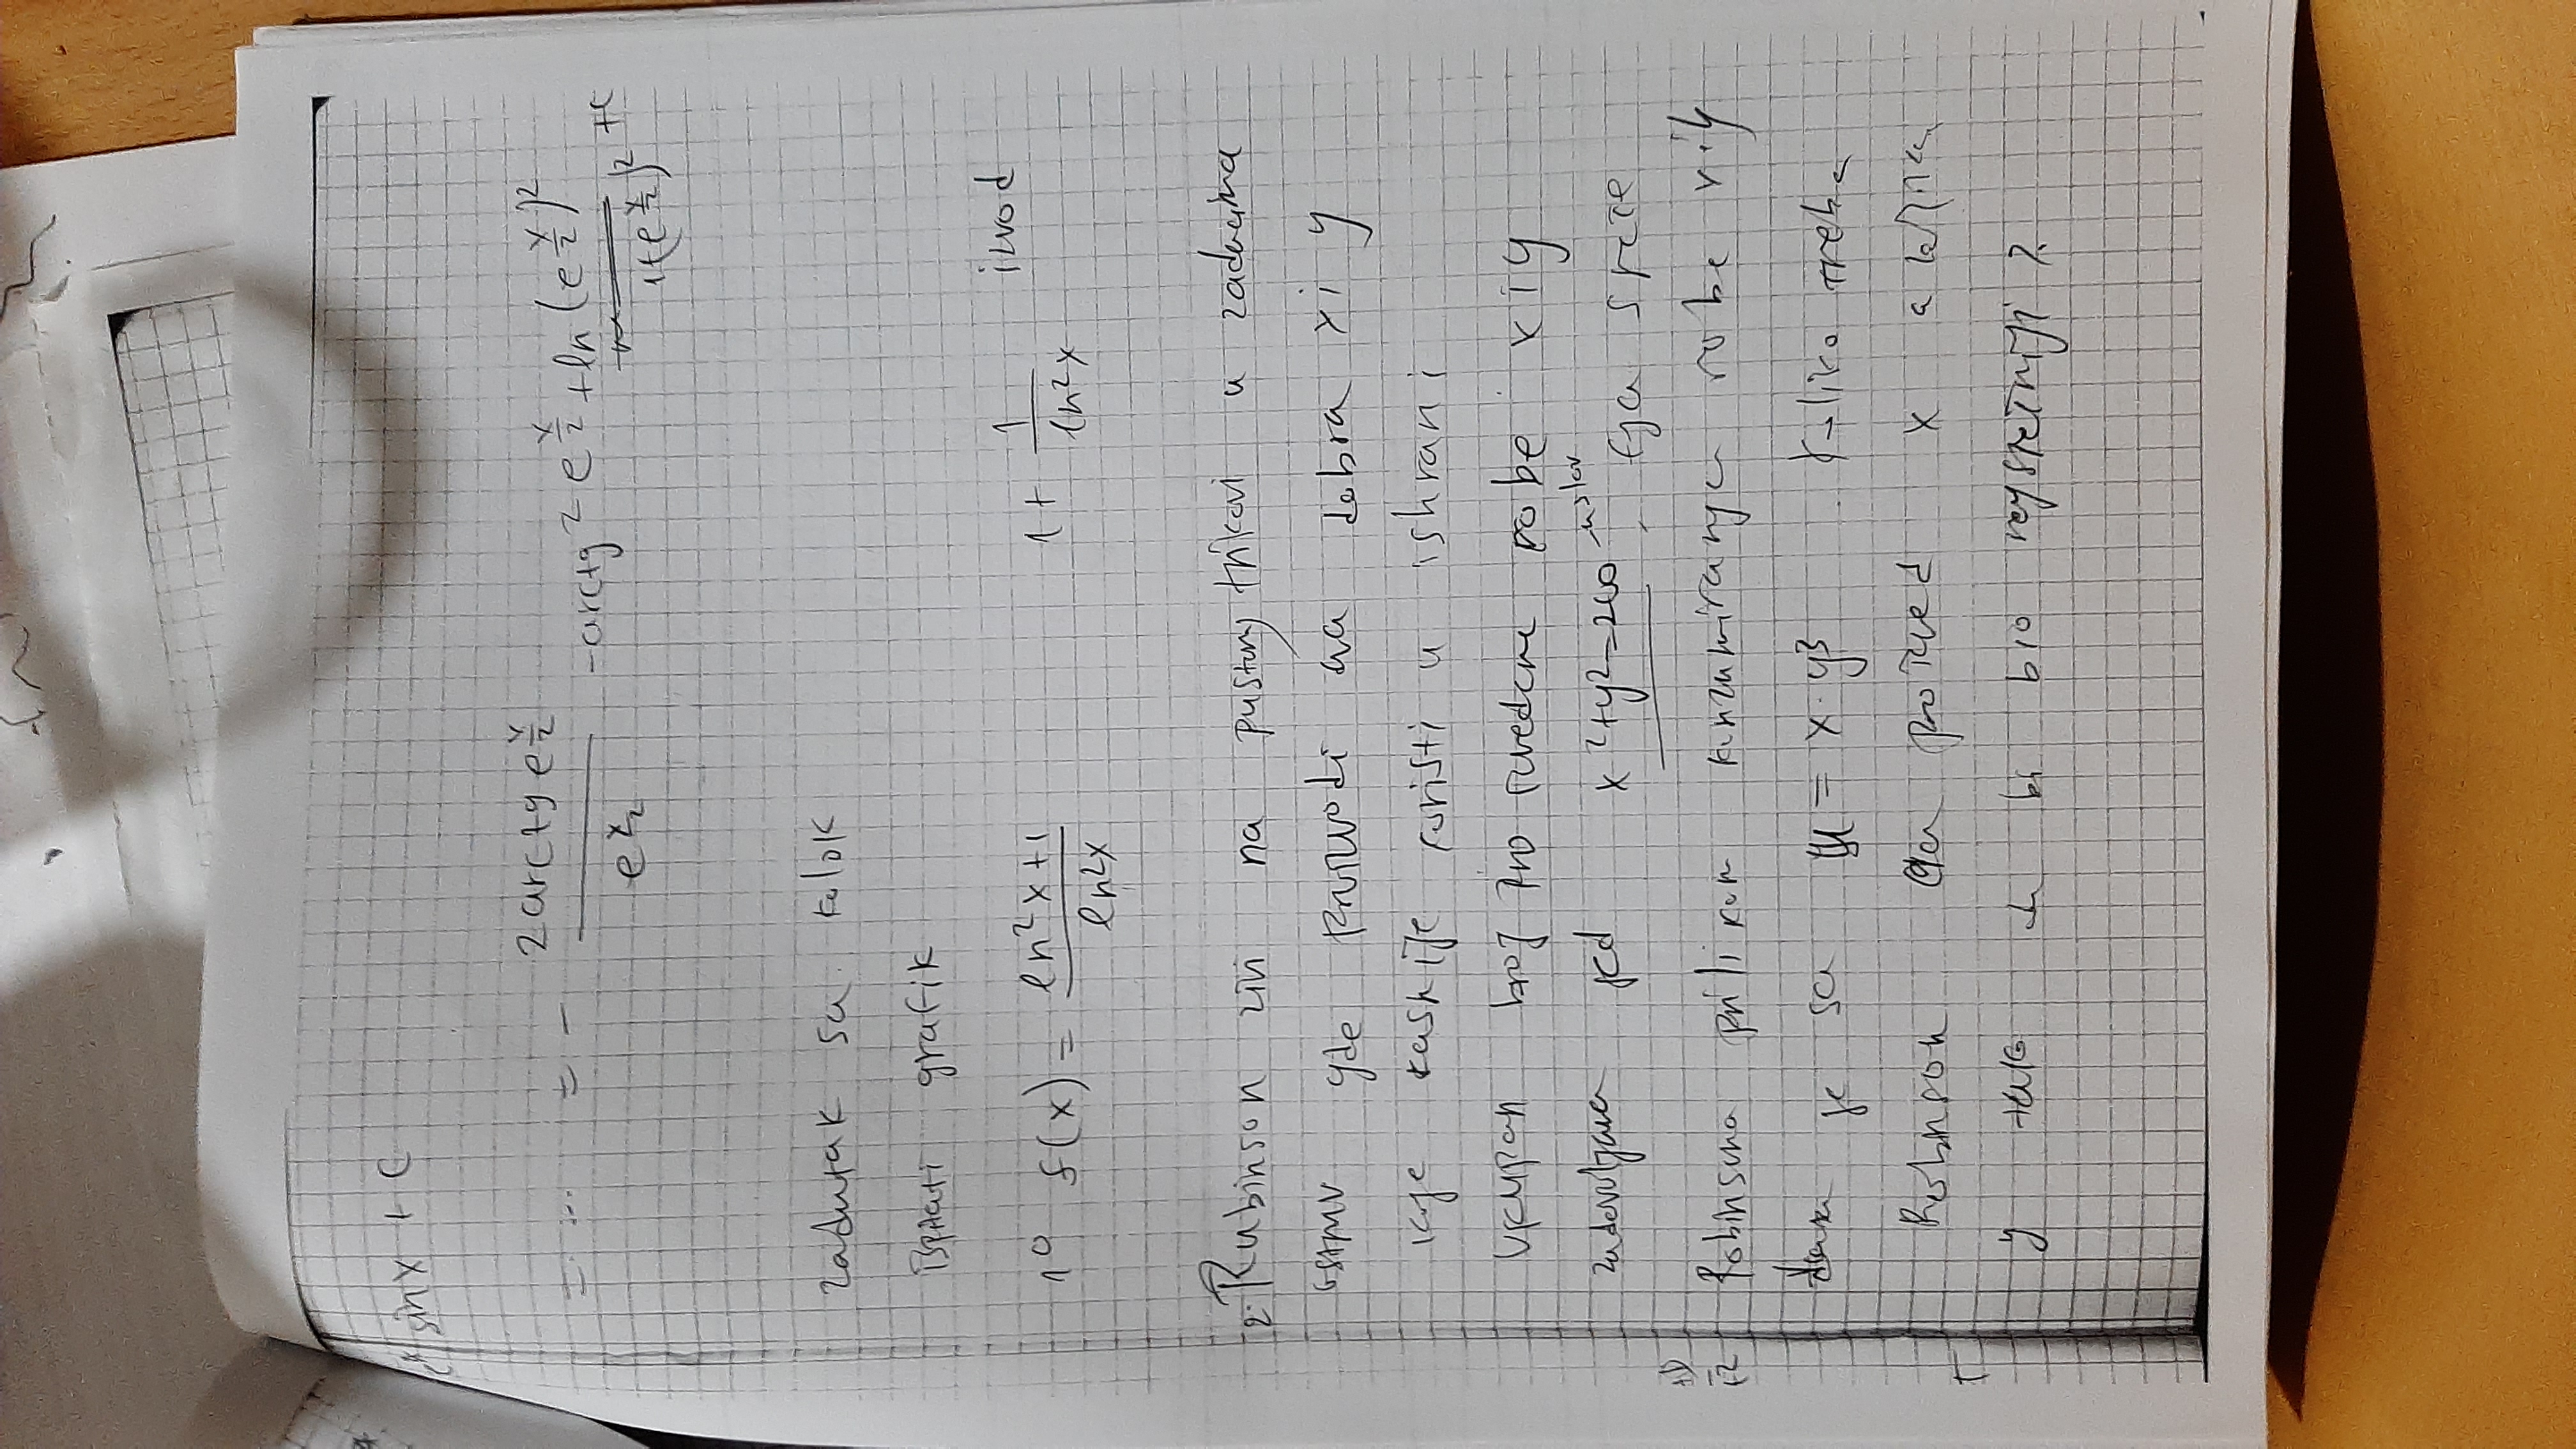 sinx + C
= ... = - 2 arctg e^x/2 / e^x/2 - arctg² e^x/2 + ln (e^x/2)² / 1+(e^x/2)² + C
zadatak sa kolok
grafik
1° f(x) = ln²x+1 / ln²x 1 + 1 / ln²x izvod
2. Rubinson živi na pustom trikovi u zadacima
gde proizvodi dva dobra x i y
koje kasnije koristi u ishrani
Ukupan broj proizvedene robe x i y
zadovoljava jed x²+y²=200 - uslov
Robinsona prilikom konzumiranja robe x i y
je sa = x · y³ Koliko treba
Robinson da proizved x a
y tako da bi bio najsrećniji ?